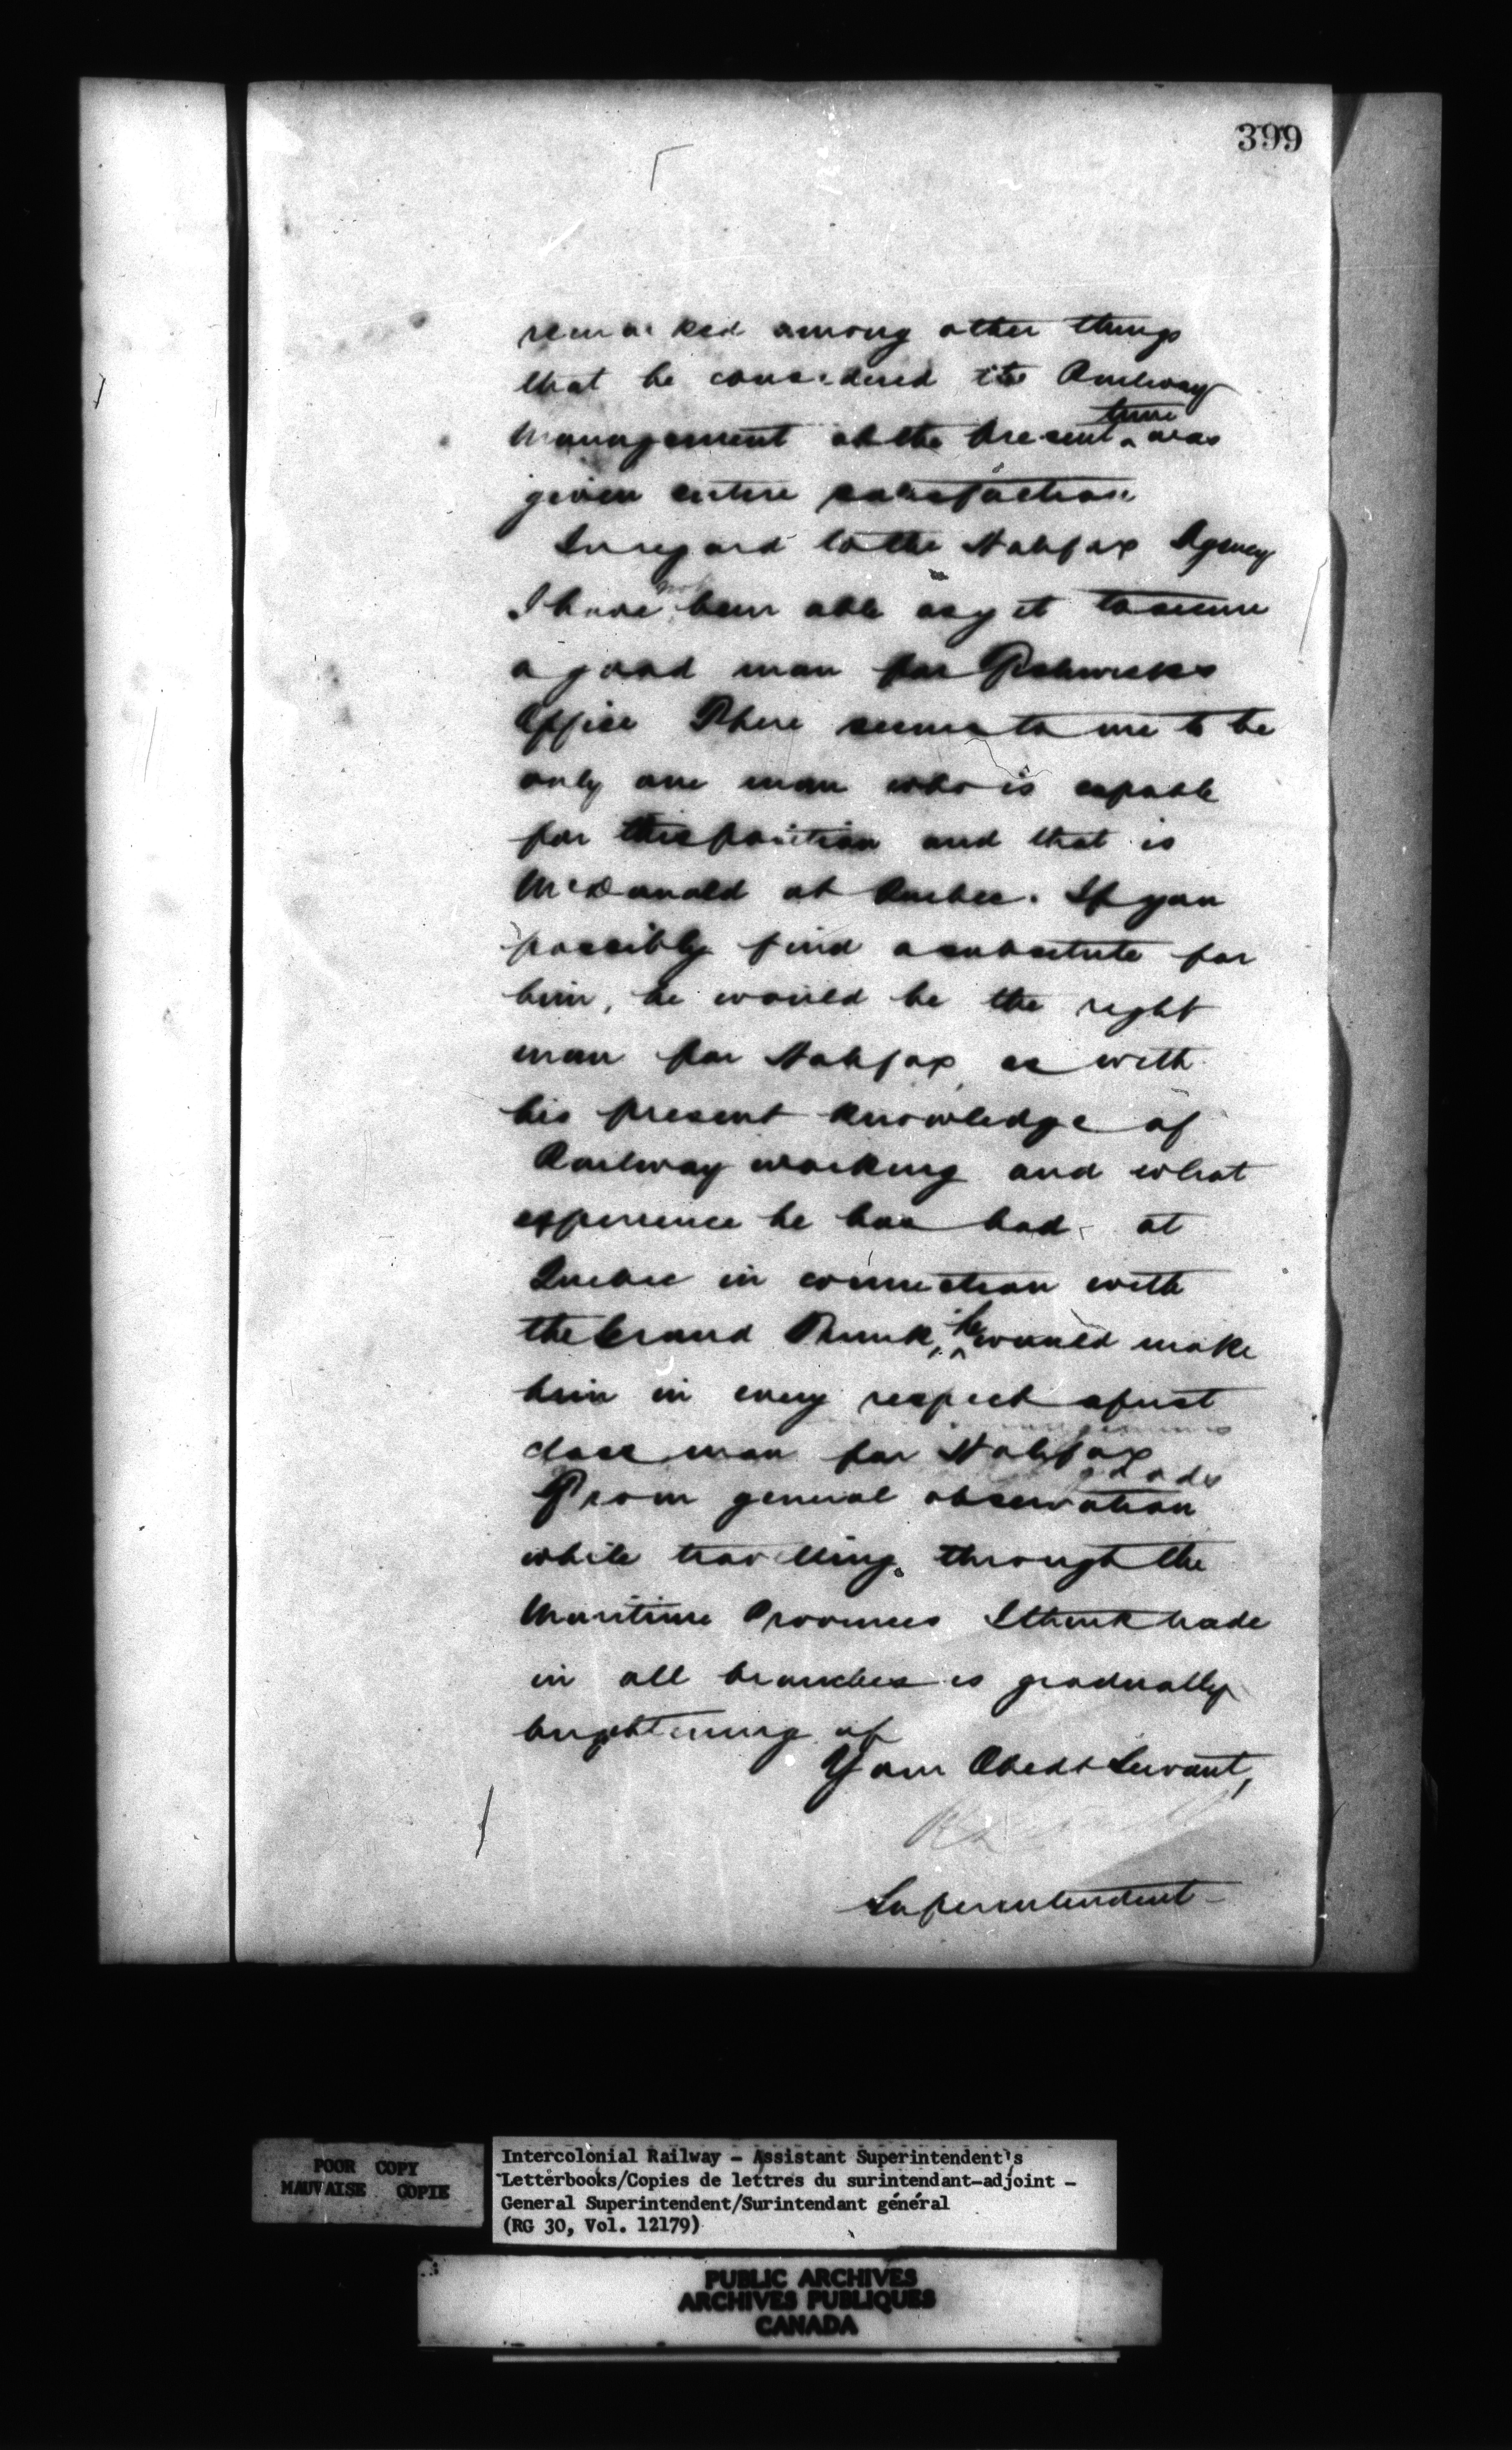 399
remarked among other things
that he considered the Railway
time
Management at the present ^ was
given entire satisfaction
In regard to the Halifax Agency
not
I have been able as yet to secure
a good man for
Office There seems to me to be
only one man who is capable
for this position and that is
McDonald at Quebec. If you
possibly find a substitute for
him, he would be the right
man for Halifax, as with
his present knowledge of
Railway working and what
experience he has had at
Quebec in connection with
the Grand Trunk, ^ would make
him in every respect a first
class man for Halifax
From general observation
while travelling through the
Maritime Provinces I think trade
in all branches is gradually
brightening up
Your Obedt Servant,
Superintendent
POOR COPY
MAUVAISE COPIE
Intercolonial Railway - Assistant Superintendent's
Letterbooks/Copies de lettres du surintendant-adjoint -
General Superintendent/Surintendant général
(RG 30, Vol. 12179)
PUBLIC ARCHIVES
ARCHIVES PUBLIQUES
CANADA